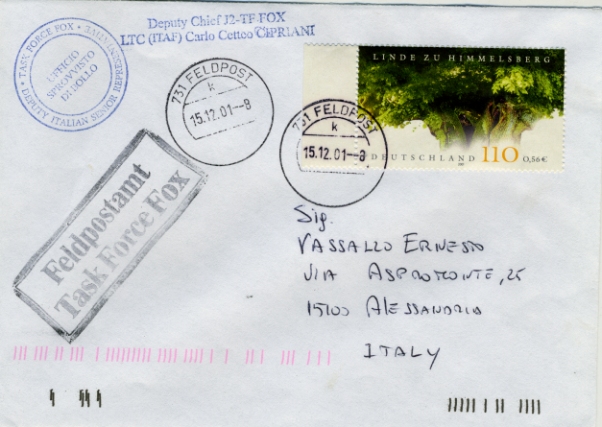 Deputy Chief J2-TF FOX
LTC (ITAF) Carlo Cetteo CIPRIANI
TASK FORCE FOX
DEPUTY ITALIAN SENIOR REPRESENTATIVE
UFFICIO
SPROVVISTO
DI BOLLO
731 FELDPOST
k
15.12.01--8
731 FELDPOST
k
15.12.01--8
LINDE ZU HIMMELSBERG
DEUTSCHLAND 110 0,56€
Feldpostamt
Task Force Fox
Sig.
VASSALLO ERNESTO
VIA ASPROMONTE, 25
15100 ALESSANDRIA
ITALY